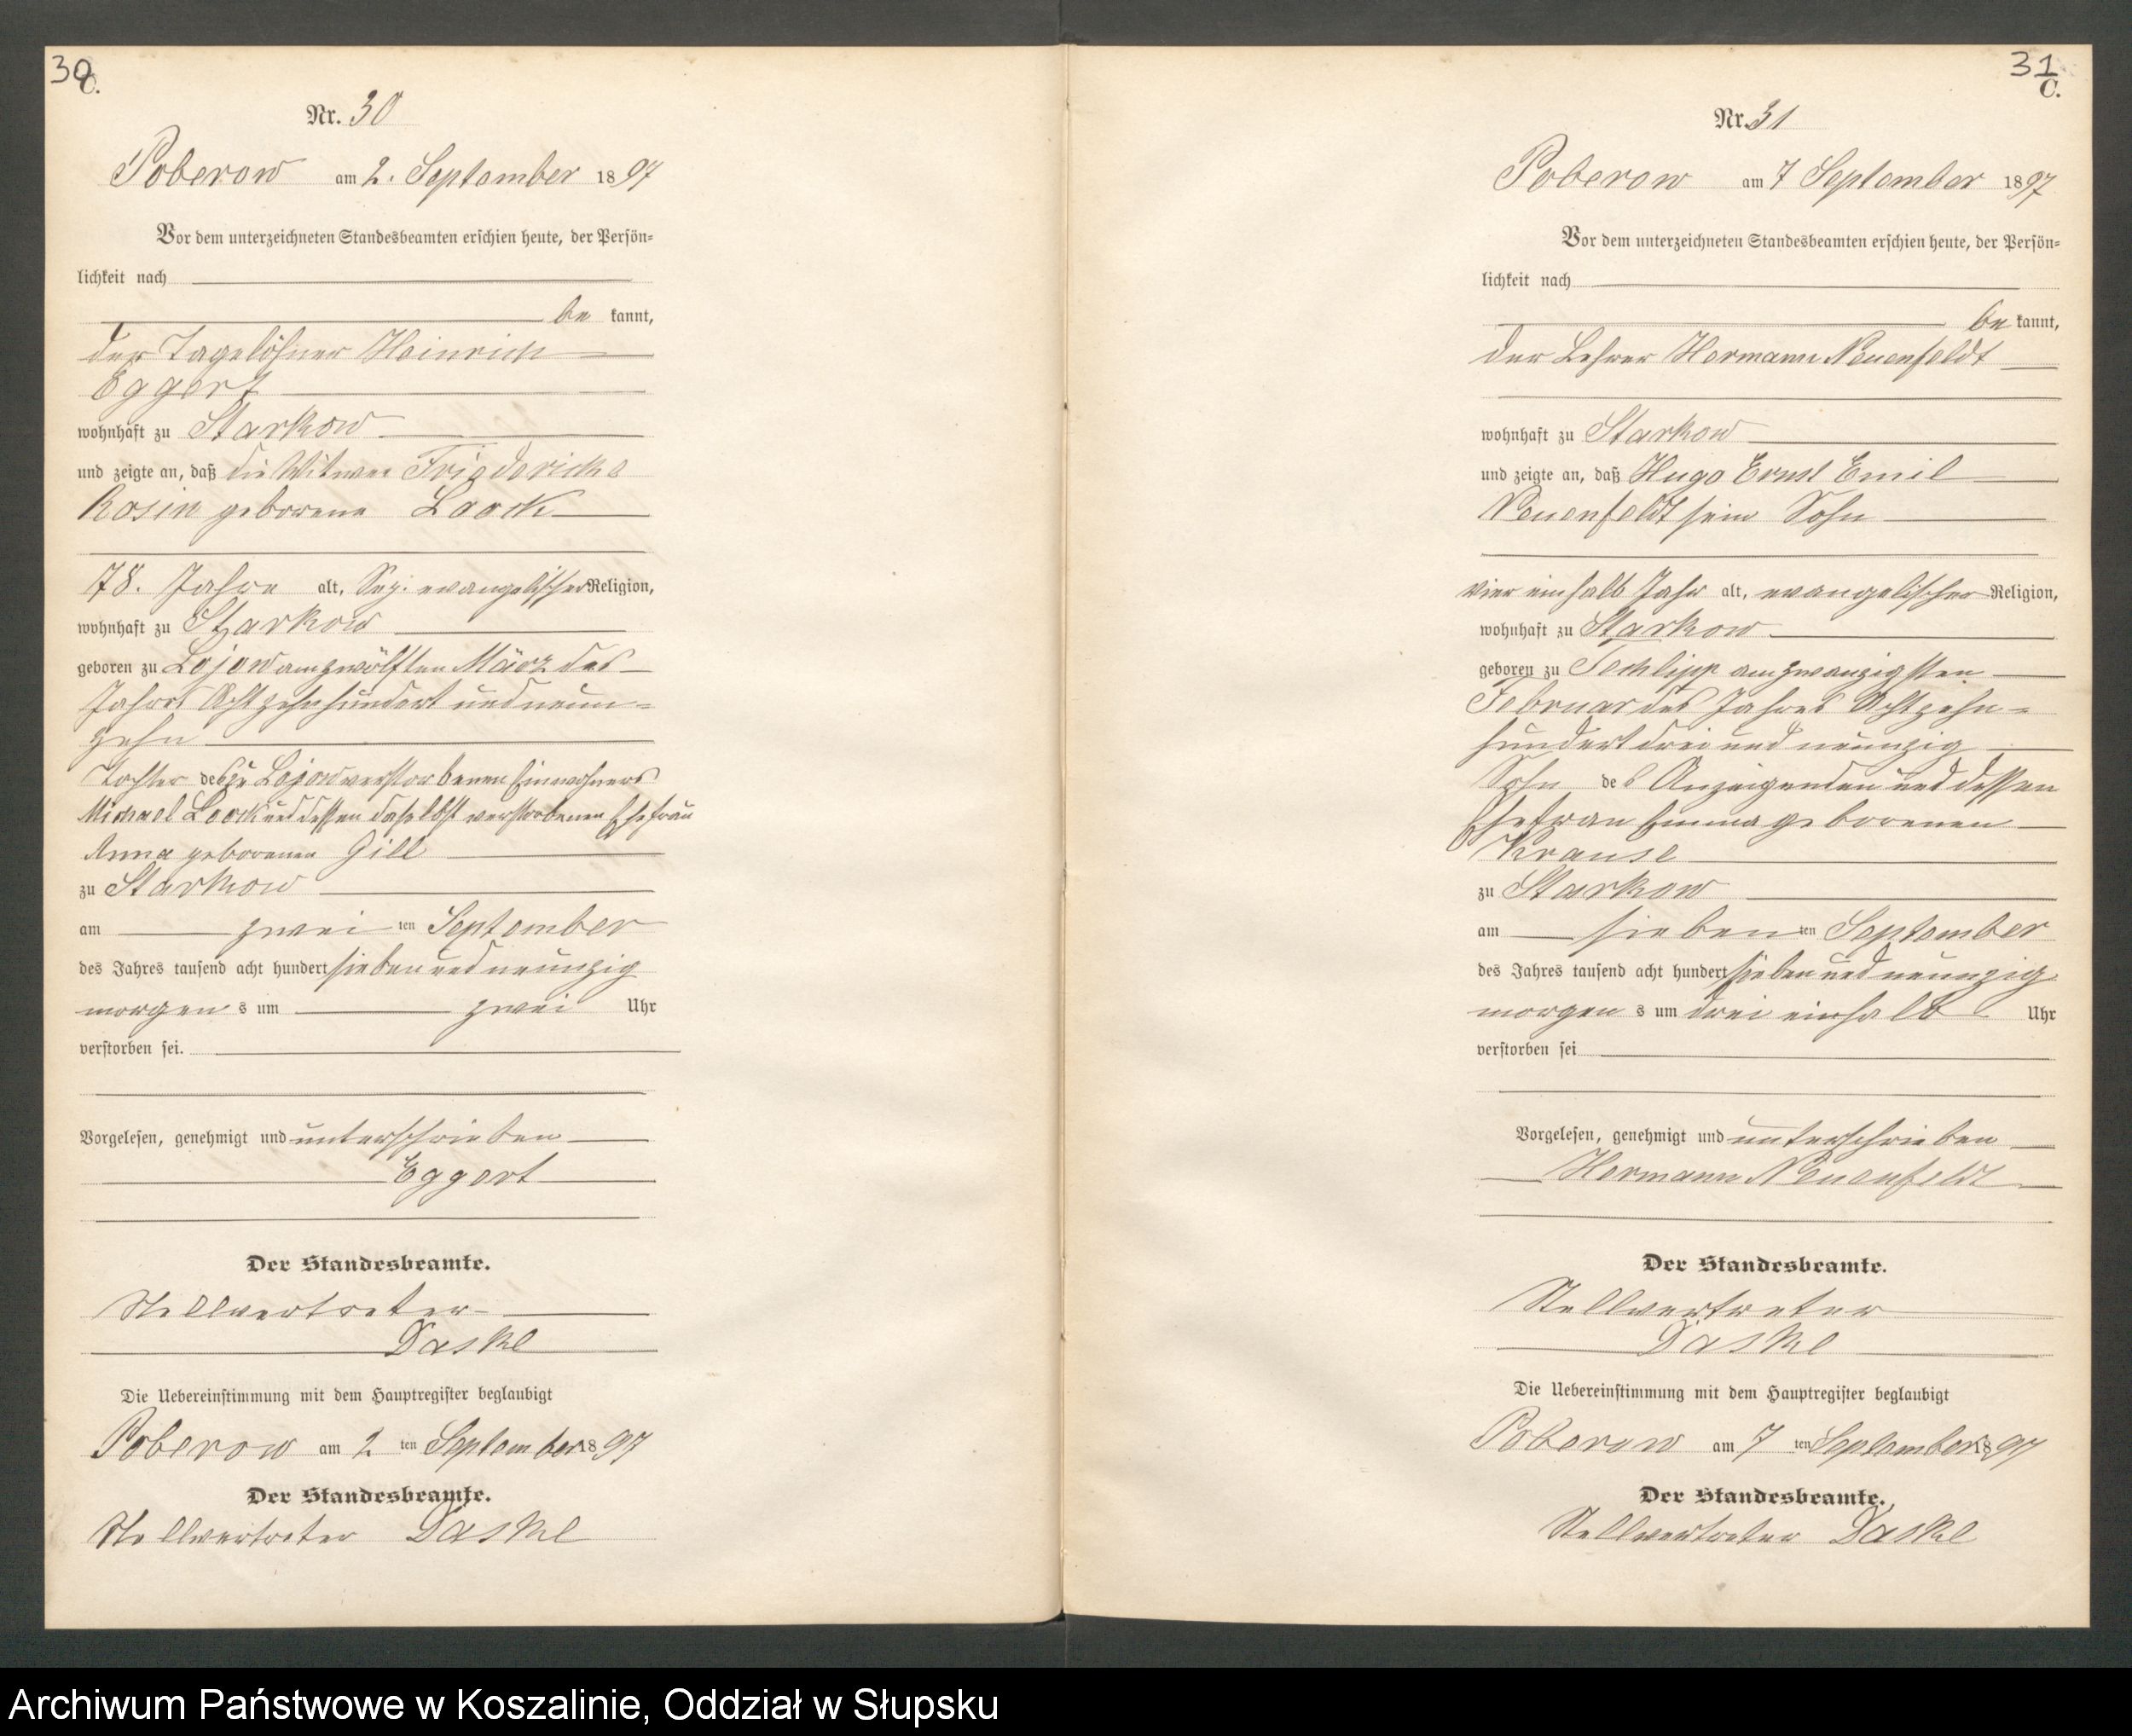 30
C.
Nr. 30
Poberow am 2. September 1897
Vor dem unterzeichneten Standesbeamten erschien heute, der Persön-
lichkeit nach
be kannt,
der Tagelöhner Heinrich
Eggert
wohnhaft zu Starkow
und zeigte an, daß die Witwe Friedericke
Rosin geborene Loock
78. Jahre alt, evangelischer Religion,
wohnhaft zu Starkow
geboren zu Lojow am zwölften März des
Jahres Achtzehnhundert und neun-
zehn
Tochter des zu Lojow verstorbenen Einwohners
Michael Loock und dessen daselbst verstorbenen Ehefrau
Anna geborenen Gill
zu Starkow
am zwei ten September
des Jahres tausend acht hundert sieben und neunzig
morgen s um zwei Uhr
verstorben sei.
Vorgelesen, genehmigt und unterschrieben
Eggert
Der Standesbeamte.
Stellvertreter
Daske
Die Uebereinstimmung mit dem Hauptregister beglaubigt
Poberow am 2 ten September 1897
Der Standesbeamte.
Stellvertreter Daske
31
C.
Nr. 31
Poberow am 7 September 1897
Vor dem unterzeichneten Standesbeamten erschien heute, der Persön-
lichkeit nach
be kannt,
der Lehrer Hermann Neuenfeldt
wohnhaft zu Starkow
und zeigte an, daß Hugo Ernst Emil
Neuenfeldt sein Sohn
vier einhalb Jahr alt, evangelischer Religion,
wohnhaft zu Starkow
geboren zu Techlipp am zwanzigsten
Februar des Jahres Achtzehn-
hundert drei und neunzig
Sohn des Anzeigenden und dessen
Ehefrau Emma geborenen
Krause
zu Starkow
am sieben ten September
des Jahres tausend acht hundert sieben und neunzig
morgen s um drei einhalb Uhr
verstorben sei
Vorgelesen, genehmigt und unterschrieben
Hermann Neuenfeldt
Der Standesbeamte.
Stellvertreter
Daske
Die Uebereinstimmung mit dem Hauptregister beglaubigt
Poberow am 7 ten September 1897
Der Standesbeamte.
Stellvertreter Daske
Archiwum Państwowe w Koszalinie, Oddział w Słupsku